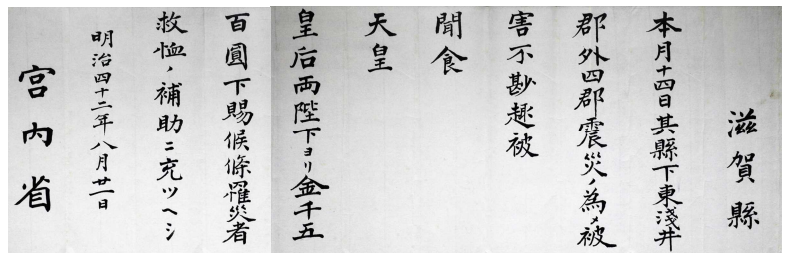 滋賀縣
本月十四日其縣下東淺井
郡外四郡震災ノ為メ被
害不尠趣被
聞食
天皇
皇后両陛下ヨリ金千五
百圓下賜候條罹災者
救恤ノ補助ニ充ツヘシ
明治四十二年八月廿一日
宮内省